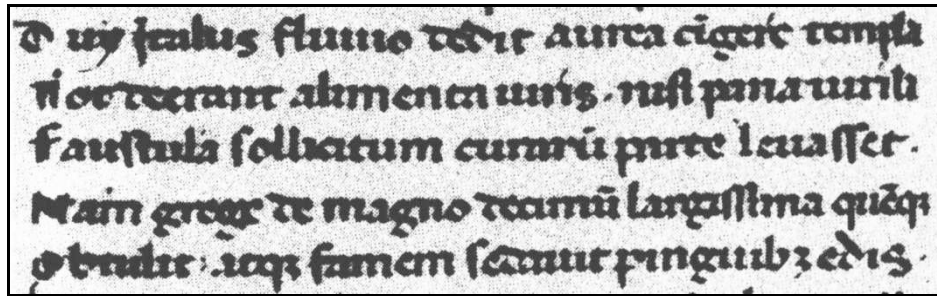 Dux italus fluuio dedit aurea cīgere templa
deerant alimenta uiris. nisi uirili
Faustula sollicitum curarū parte leuasset.
Nam grege de magno decimū largissima quēqꝫ
obtulit. atqꝫ famem sedauit pinguibꝫ edis.